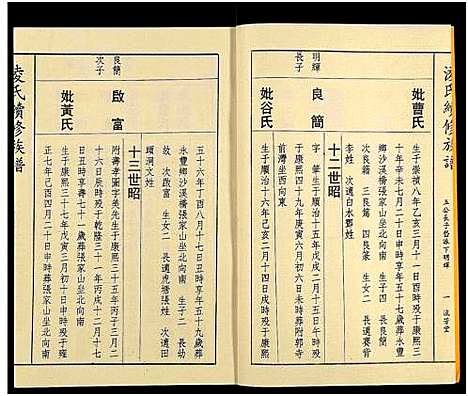 凌氏續修族譜
五公長子哲派下明輝
一
流芳堂
妣曹氏
生于崇禎八年乙亥三月十一日酉時歿于康熙
三十年辛未七月二十日申時享年五十七歲葬永豐
鄉沙溪橋張家山坐北向南 生子四 長良簡
次良籍 三良篇 四良篆 生女二 長適賽背
李姓 次適白水鄧姓
十二世昭
明輝
長子
良簡
字華 生于順治十五年戊戌二月十五日戌時歿于
康熙四十九年庚寅六月初六日未時葬附郭寺
前灣坐西向東
妣谷氏
生于順治十六年己亥二月十四日戌時歿于康熙
五十六年丁酉八月十七日丑時享年五十九歲葬
永豐鄉沙溪橋張家山坐北向南 生子二 長劭
次啟富 生女二 長適虎橋張姓 次適田
頭洞文姓
十三世昭
良簡
次子
啟富
附壽孝圖字美先生于康熙三十五年丙子三月二
十六日辰時歿于乾隆三十一年丙戌十二月十七
日酉時享壽七十一歲葬張家山坐北向南
妣黃氏
生于康熙三十七年戊寅三月初十日申時歿于雍
正七年己酉四月二十日丑時歿葬張家山坐北向南
凌氏續修族譜